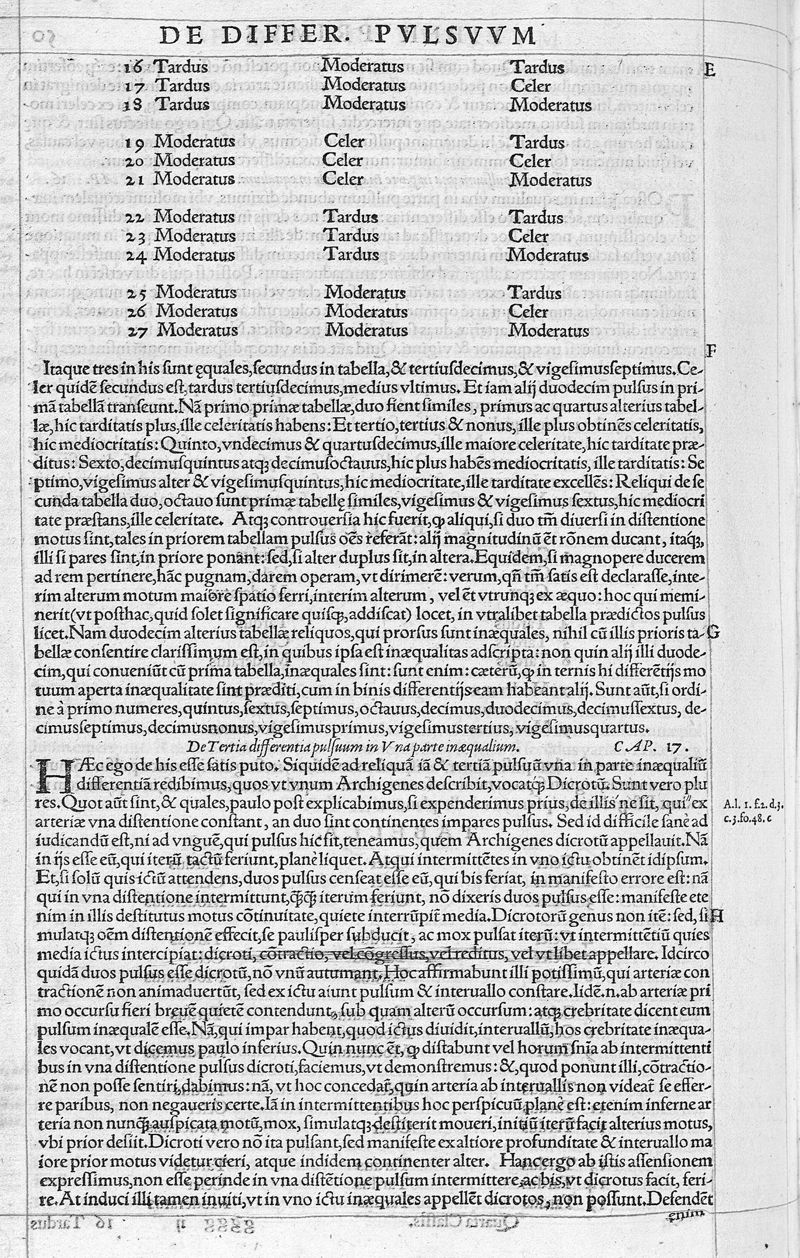 DE DIFFER. PVLSVVM
16 Tardus Moderatus Tardus
E
17 Tardus Moderatus Celer
18 Tardus Moderatus Moderatus
19 Moderatus Celer Tardus
20 Moderatus Celer Celer
21 Moderatus Celer Moderatus
22 Moderatus Tardus Tardus
23 Moderatus Tardus Celer
24 Moderatus Tardus Moderatus
25 Moderatus Moderatus Tardus
26 Moderatus Moderatus Celer
27 Moderatus Moderatus Moderatus
F
Itaque tres in his sunt ęquales, secundus in tabella, & tertiusdecimus, & vigesimusseptimus. Ce-
ler quidē secundus est, tardus tertiusdecimus, medius vltimus. Et iam alij duodecim pulsus in pri-
mā tabellā transeunt. Nā primo primæ tabellæ, duo fient similes, primus ac quartus alterius tabel-
læ, hic tarditatis plus, ille celeritatis habens: Et tertio, tertius & nonus, ille plus obtinēs celeritatis,
hic mediocritatis: Quinto, vndecimus & quartusdecimus, ille maiore celeritate, hic tarditate præ-
ditus: Sexto, decimusquintus atq; decimusoctauus, hic plus habēs mediocritatis, ille tarditatis: Se
ptimo, vigesimus alter & vigesimusquintus, hic mediocritate, ille tarditate excellēs: Reliqui de se
cunda tabella duo, octauo sunt primæ tabellę similes, vigesimus & vigesimus sextus, hic mediocri
tate præstans, ille celeritate. Atq; controuersia hic fuerit, ꝙ aliqui, si duo tm̄ diuersi in distentione
motus sint, tales in priorem tabellam pulsus oēs referāt: alij magnitudinū ēt rōnem ducant, itaq;,
illi si pares sint, in priore ponāt: sed, si alter duplus sit, in altera. Equidem, si magnopere ducerem
ad rem pertinere, hāc pugnam, darem operam, vt dirimerē: verum, qn̄ tm̄ satis est declarasse, inte-
rim alterum motum maiore spatio ferri, interim alterum, vel ēt vtrunq; ex æquo: hoc qui memi-
nerit (vt posthac, quid solet significare quisq;, addiscat) locet, in vtralibet tabella prædictos pulsus
licet. Nam duodecim alterius tabellæ reliquos, qui prorsus sunt inæquales, nihil cū illis prioris ta-
G
bellæ consentire clarissimum est, in quibus ipsa est inæqualitas adscripta: non quin alij illi duode-
cim, qui conueniūt cū prima tabella, inæquales sint: sunt enim: cæterū, ꝙ in ternis hi differētijs mo
tuum aperta inæqualitate sint præditi, cum in binis differentijs eam habeant alij. Sunt aūt, si ordi-
ne à primo numeres, quintus, sextus, septimus, octauus, decimus, duodecimus, decimussextus, de-
cimusseptimus, decimusnonus, vigesimusprimus, vigesimustertius, vigesimusquartus.
De Tertia differentia pulsuum in Vna parte inæqualium. CAP. 17.
HÆc ego de his esse satis puto. Siquidē ad reliquā iā & tertiā pulsuū vna in parte inæqualiū
differentiā redibimus, quos vt vnum Archigenes describit, vocatq; Dicrotū. Sunt vero plu
res. Quot aūt sint, & quales, paulo post explicabimus, si expenderimus prius, de illis ne sit, qui ex
A.l. 1. f.2. d.j.
c.j.fo.48.c
arteriæ vna distentione constant, an duo sint continentes impares pulsus. Sed id difficile sanè ad
iudicandū est, ni ad vnguē, qui pulsus hic sit, teneamus, quem Archigenes dicrotū appellauit. Nā
in ijs esse eū, qui iterū tactū feriunt, planè liquet. Atqui intermittētes in vno ictu obtinēt idipsum.
Et, si solū quis ictū attendens, duos pulsus censeat esse eū, qui bis feriat, in manifesto errore est: nā
qui in vna distentione intermittunt, ꝗ̄ꝗ̄ iterum feriunt, nō dixeris duos pulsus esse: manifeste ete
nim in illis destitutus motus cōtinuitate, quiete interrūpit̄ media. Dicrotorū genus non itē: sed, si
H
mulatq; oēm distentionē effecit, se paulisper subducit, ac mox pulsat iterū: vt intermittētiū quies
media ictus intercipiat: dicroti, cōtractio, vel cōgressus, vel reditus, vel vt libet appellare. Idcirco
quidā duos pulsus esse dicrotū, nō vnū autumant. Hoc affirmabunt illi potissimū, qui arteriæ con
tractionē non animaduertūt, sed ex ictu aiunt pulsum & interuallo constare. Iidē.n. ab arteriæ pri
mo occursu fieri breuē quietē contendunt, sub quam alterū occursum: atq; crebritate dicent eum
pulsum inæqualē esse. Nā, qui impar habent, quod ictus diuidit, interuallū, hos crebritate inæqua-
les vocant, vt dicemus paulo inferius. Quin nunc ēt, ꝙ distabunt vel horum sn̄ia ab intermittenti
bus in vna distentione pulsus dicroti, faciemus, vt demonstremus: &, quod ponunt illi, cōtractio-
nē non posse sentiri, dabimus: nā, vt hoc concedat̄, quin arteria ab interuallis non videat̄ se effer-
re paribus, non negaueris certe. Iā in intermittentibus hoc perspicuū planè est: etenim inferne ar
teria non nunq̄ auspicata motū, mox, simulatq; destiterit moueri, initiū iterū facit alterius motus,
vbi prior desiit. Dicroti vero nō ita pulsant, sed manifeste ex altiore profunditate & interuallo ma
iore prior motus videtur cieri, atque indidem continenter alter. Hanc ergo ab istis assensionem
expressimus, non esse perinde in vna distētione pulsum intermittere, ac bis, vt dicrotus facit, feri-
re. At induci illi tamen inuiti, vt in vno ictu inæquales appellēt dicrotos, non possunt. Defendēt
enim